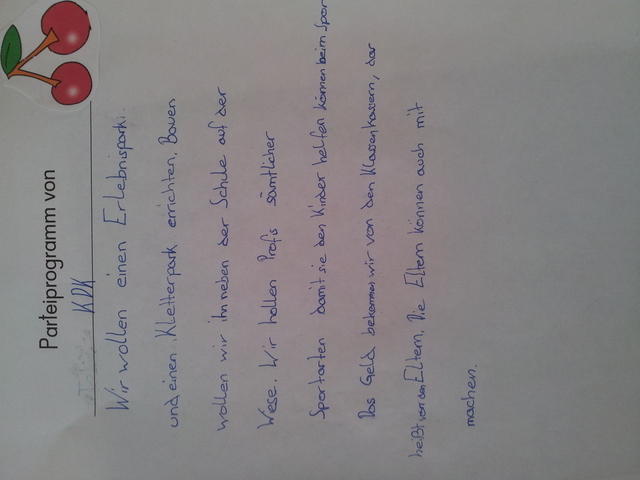 Parteiprogramm von
KDK
Wir wollen einen Erlebnispark
und einen Kletterpark errichten. Bauen
wollen wir ihn neben der Schule auf der
Wiese. Wir hollen Profis sämtlicher
Sportarten damit sie den Kinder helfen können beim Spor
Das Geld bekommen wir von den Klassenkassern, dar
heißt von den Eltern. Die Eltern können auch mit
machen.